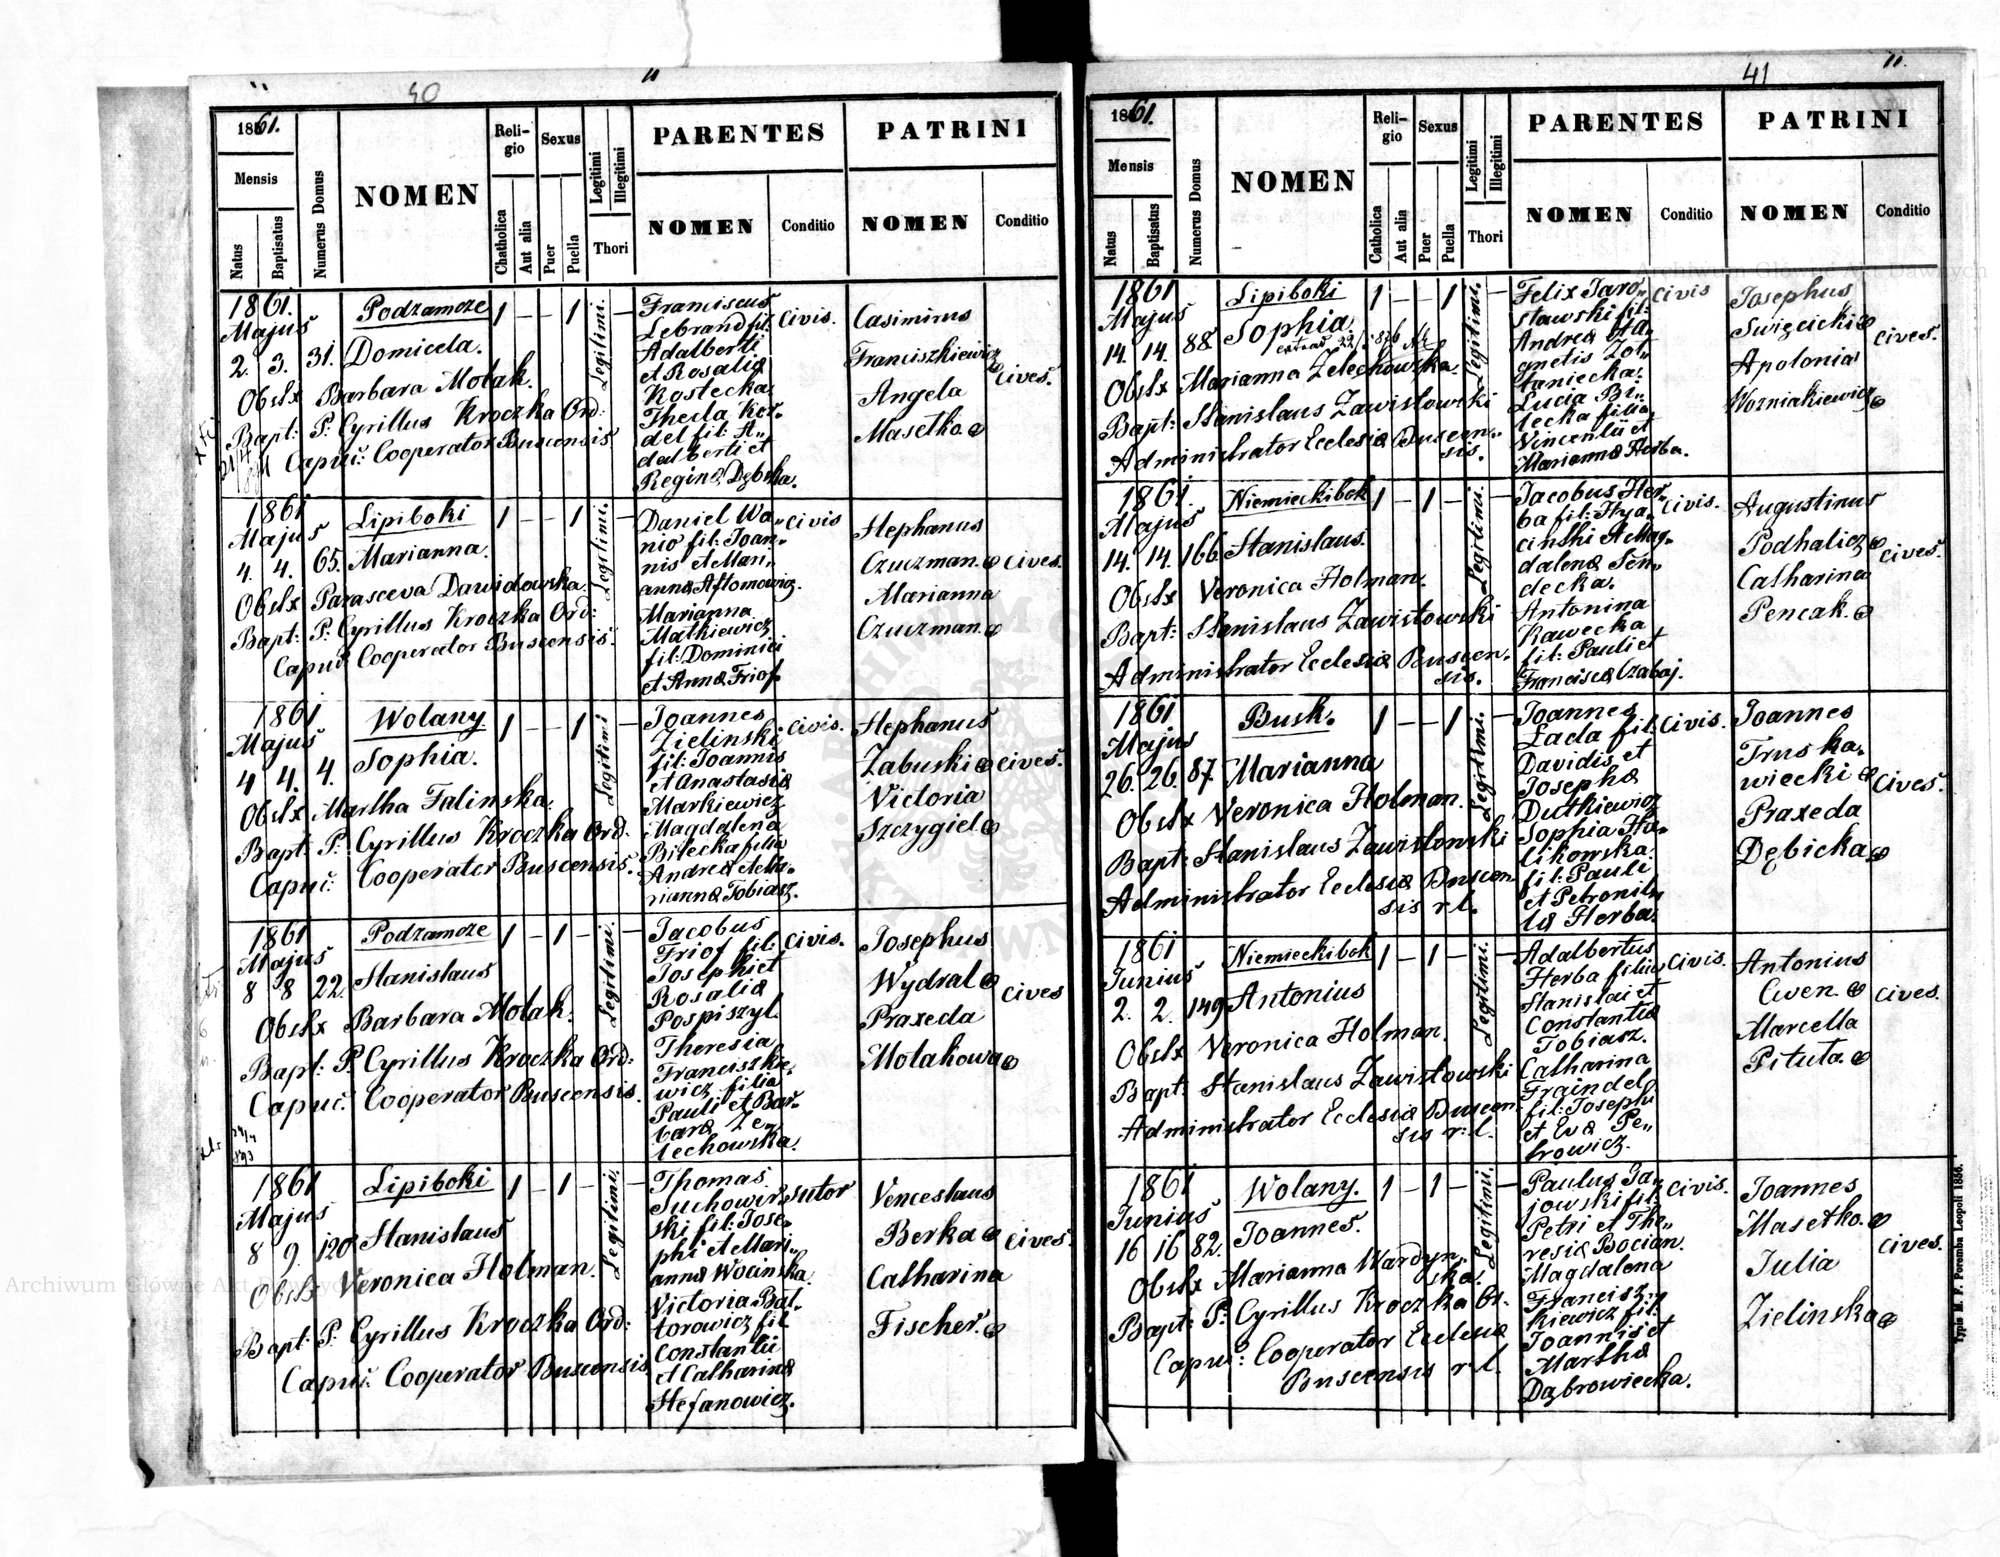 40
1861.
Mensis
Natus
Baptisatus
Numerus Domus
NOMEN
Religio
Chatholica
Aut alia
Sexus
Puer
Puella
Legitimi
Illegitimi
Thori
PARENTES
NOMEN
Conditio
PATRINI
NOMEN
Conditio
1861.
Majus
2. 3. 31.
Podzamcze
Domicela.
Obstx Barbara Motak.
Bapt: P: Cyrillus Kroczka Ord:
Capuc: Cooperator Buscensis
1 – – 1
Legitimi.
Franciscus
Lebrand fil:
Adalberti
et Rosaliæ
Kostecka
Thecla Kor-
del fil: A-
dalberti et
Reginæ Dębska.
Civis.
Casimirus
Franciszkiewicz
Angela
Masetko
Cives.
1861
Majus
4. 4. 65.
Lipiboki
Marianna.
Obstx Parasceva Dawidowska.
Bapt: P: Cyrillus Kroczka Ord:
Capuc: Cooperator Buscensis.
1 – – 1
Legitimi.
Daniel Wa-
nio fil: Joan-
nis et Mari-
annæ Aftomowicz.
Marianna
Malkiewicz
fil: Dominici
et Annæ Friof
Civis
Stephanus
Czuczman.
Marianna
Czuczman.
Cives.
1861
Majus
4 4. 4.
Wolany
Sophia.
Obstx Martha Falinska.
Bapt: P: Cyrillus Kroczka Ord:
Capuc: Cooperator Buscensis.
1 – – 1
Legitimi
Joannes
Zielinski
fil: Joannis
et Anastasiæ
Markiewicz
Magdalena
Bilecka filia
Andreæ et Ma-
riannæ Tobiasz.
Civis.
Stephanus
Zabuski
Victoria
Szczygiel
Cives.
1861
Majus
8 8 22.
Podzamcze
Stanislaus
Obstx Barbara Motak.
Bapt: P: Cyrillus Kroczka Ord:
Capuc: Cooperator Buscensis.
1 – 1 –
Legitimi.
Jacobus
Friof fil:
Josephi et
Rosaliæ
Pospiszyl.
Theresia
Franciszkie-
wicz filia
Pauli et Bar-
baræ Ze-
lechowska.
Civis.
Josephus
Wydral
Praxeda
Motakowa
Cives
1861
Majus
8 9. 120
Lipiboki
Stanislaus
Obstx Veronica Holman.
Bapt: P: Cyrillus Kroczka Ord:
Capuc: Cooperator Buscensis
1 – 1 –
Legitimi.
Thomas
Suchowir-
ski fil: Jose-
phi et Mari-
annæ Wocinska.
Victoria Bal-
torowicz fil
Constantii
et Catharinæ
Stefanowicz.
sutor
Venceslaus
Berka
Catharina
Fischer.
Cives.
41
1861.
Mensis
Natus
Baptisatus
Numerus Domus
NOMEN
Religio
Catholica
Aut alia
Sexus
Puer
Puella
Legitimi
Illegitimi
Thori
PARENTES
NOMEN
Conditio
PATRINI
NOMEN
Conditio
1861
Majus
14. 14. 88.
Lipiboki
Sophia.
Obstx Marianna Zelechowska.
Bapt: Stanislaus Zawistowski
Administrator Ecclesiæ Buscen-
sis.
1 – – 1
Legitimi.
Felix Jaro-
slawski fil:
Andreæ et A-
gnetis Zol-
taniecka.
Lucia Bi-
lecka filia
Vincentii et
Mariannæ Herba.
Civis
Josephus
Swięcicki
Apolonia
Wozniakiewicz
Cives.
1861.
Majus
14. 14. 166.
Niemieckibok
Stanislaus.
Obstx Veronica Holman.
Bapt: Stanislaus Zawistowski
Administrator Ecclesiæ Buscen-
sis.
1 – 1 –
Legitimi.
Jacobus Her-
ba fil: Hya-
cinthi et Mag-
dalenæ Sen-
decka.
Antonina
Kawecka
fil: Pauli et
Franciscæ Czabaj.
Civis.
Augustinus
Podhalicz
Catharina
Pencak.
Cives.
1861
Majus
26. 26. 87.
Busk.
Marianna
Obstx Veronica Holman.
Bapt: Stanislaus Zawistowski
Administrator Ecclesiæ Buscen-
sis r.l.
1 – – 1
Legitimi.
Joannes
Lada fil:
Davidis et
Josephæ
Dutkiewicz
Sophia Ha-
likowska
fil: Pauli
et Petronil-
læ Herba.
Civis.
Joannes
Truska-
wiecki
Praxeda
Dębicka
Cives.
1861
Junius
2. 2. 149
Niemieckibok
Antonius
Obstx Veronica Holman.
Bapt: Stanislaus Zawistowski
Administrator Ecclesiæ Buscen-
sis r.l.
1 – 1 –
Legitimi.
Adalbertus
Herba filius
Stanislai et
Constantiæ
Tobiasz.
Catharina
Fraindel
fil: Josephi
et Evæ Pe-
trowicz.
Civis.
Antonius
Cwen.
Marcella
Pituta.
Cives.
1861
Junius
16 16 82.
Wolany.
Joannes.
Obstx Marianna Wardyn-
ska.
Bapt: P: Cyrillus Kroczka Or.
Capuc: Cooperator Ecclesiæ
Buscensis r.l.
1 – 1 –
Legitimi.
Paulus Ja-
jowski fil:
Petri et The-
resiæ Bocian.
Magdalena
Francisz-
kiewicz fil:
Joannis et
Marthæ
Dąbrowiecka.
Civis.
Joannes
Masetko.
Julia
Zielinska
Cives.
Typis M. F. Poremba Leopoli 1856.
Archiwum Główne Akt Dawnych
Archiwum Główne Akt Dawnych